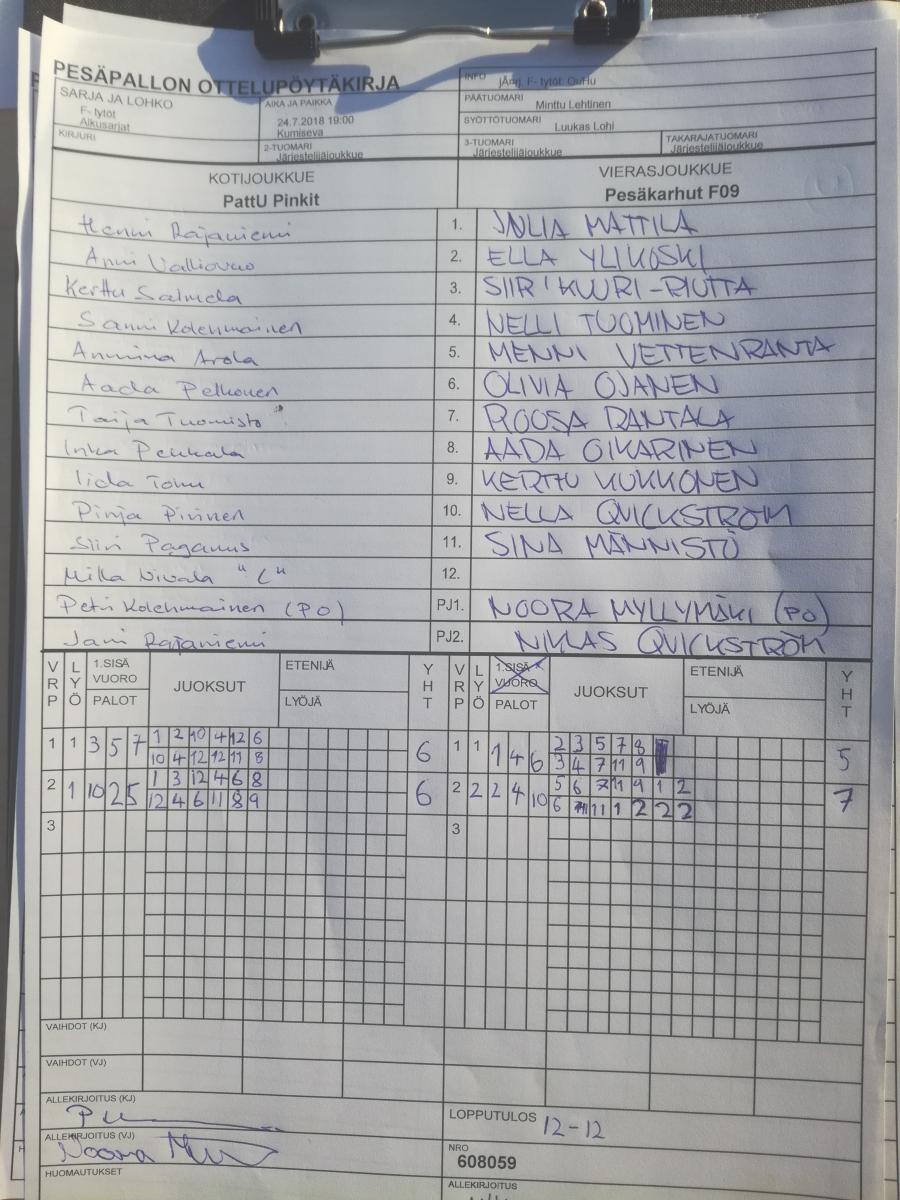 PESÄPALLON OTTELUPÖYTÄKIRJA
INFO jÄnj, F- tytöt: OuHu
SARJA JA LOHKO F- tytöt Alkusarjat
AIKA JA PAIKKA 24.7.2018 19:00 Kumiseva
PÄÄTUOMARI Minttu Lehtinen
SYÖTTÖTUOMARI Luukas Lohi
KIRJURI
2-TUOMARI Järjestelijäjoukkue
3-TUOMARI Järjestelijäjoukkue
TAKARAJATUOMARI Järjestelijäjoukkue
KOTIJOUKKUE VIERASJOUKKUE
PattU Pinkit Pesäkarhut F09
Henni Rajaniemi 1. JULIA MATTILA
Anni 2. ELLA YLIKOSKI
Kerttu Salmela 3. SIIRI KUURI-RIUTTA
Sanni Kolehmainen 4. NELLI TUOMINEN
Anniina Arola 5. MENNI VETTENRANTA
Aada Pelkonen 6. OLIVIA OJANEN
Taija Tuomisto 7. ROOSA RANTALA
Inka Penkkala 8. AADA OIKARINEN
Iida 9. KERTTU KUKKONEN
Pinja Pirinen 10. NELLA QVICKSTRÖM
Siiri Paganus 11. SINA MÄNNISTÖ
Milla Nivala "C" 12.
Petri Kolehmainen (PO) PJ1. NOORA MYLLYMÄKI (PO)
Jani Rajaniemi PJ2. NIKLAS QVICKSTRÖM
VRP LYÖ 1.SISÄ VUORO PALOT JUOKSUT ETENIJÄ LYÖJÄ YHT VRP LYÖ 1.SISÄ VUORO PALOT JUOKSUT ETENIJÄ LYÖJÄ YHT
1 1 3 5 7 1 2 10 4 12 6 6 1 1 1 4 6 2 3 5 7 8 5
10 4 12 12 11 8 3 4 7 11 9
2 1 10 2 5 1 3 12 4 6 8 6 2 2 2 4 10 5 6 7 11 9 1 2 7
12 4 6 11 8 9 6 11 11 1 2 2 2
3 3
VAIHDOT (KJ)
VAIHDOT (VJ)
ALLEKIRJOITUS (KJ)
LOPPUTULOS 12-12
ALLEKIRJOITUS (VJ) Noora
NRO 608059
HUOMAUTUKSET
ALLEKIRJOITUS